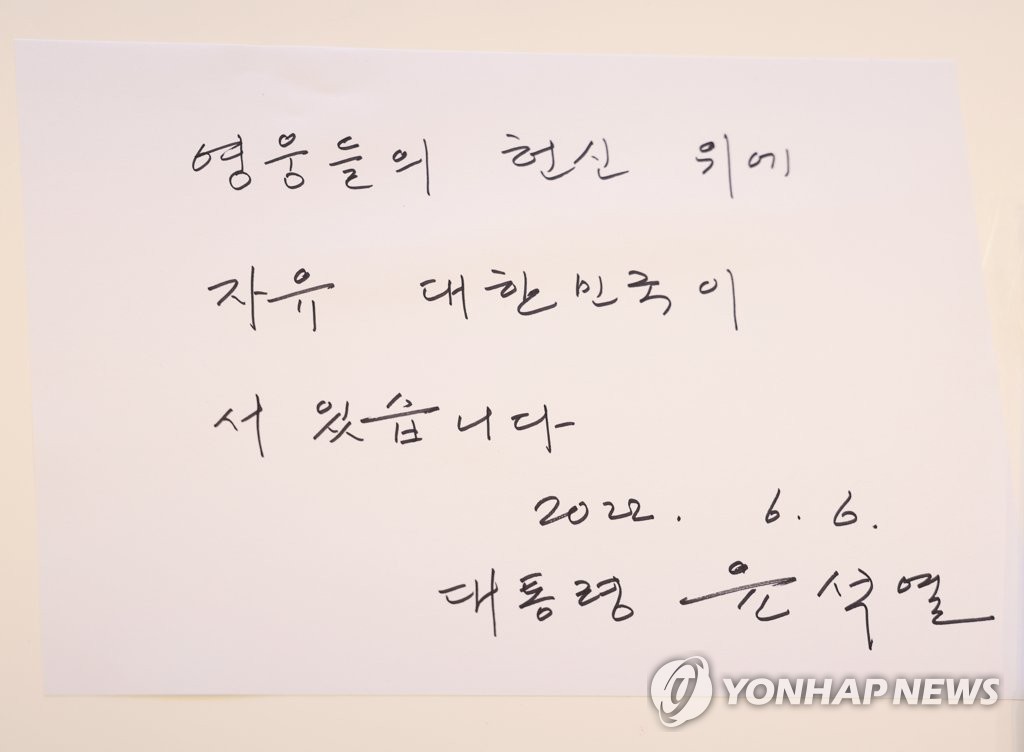 영웅들의 헌신 위에
자유 대한민국이
서 있습니다
2022. 6. 6.
대통령 윤석열
YONHAP NEWS